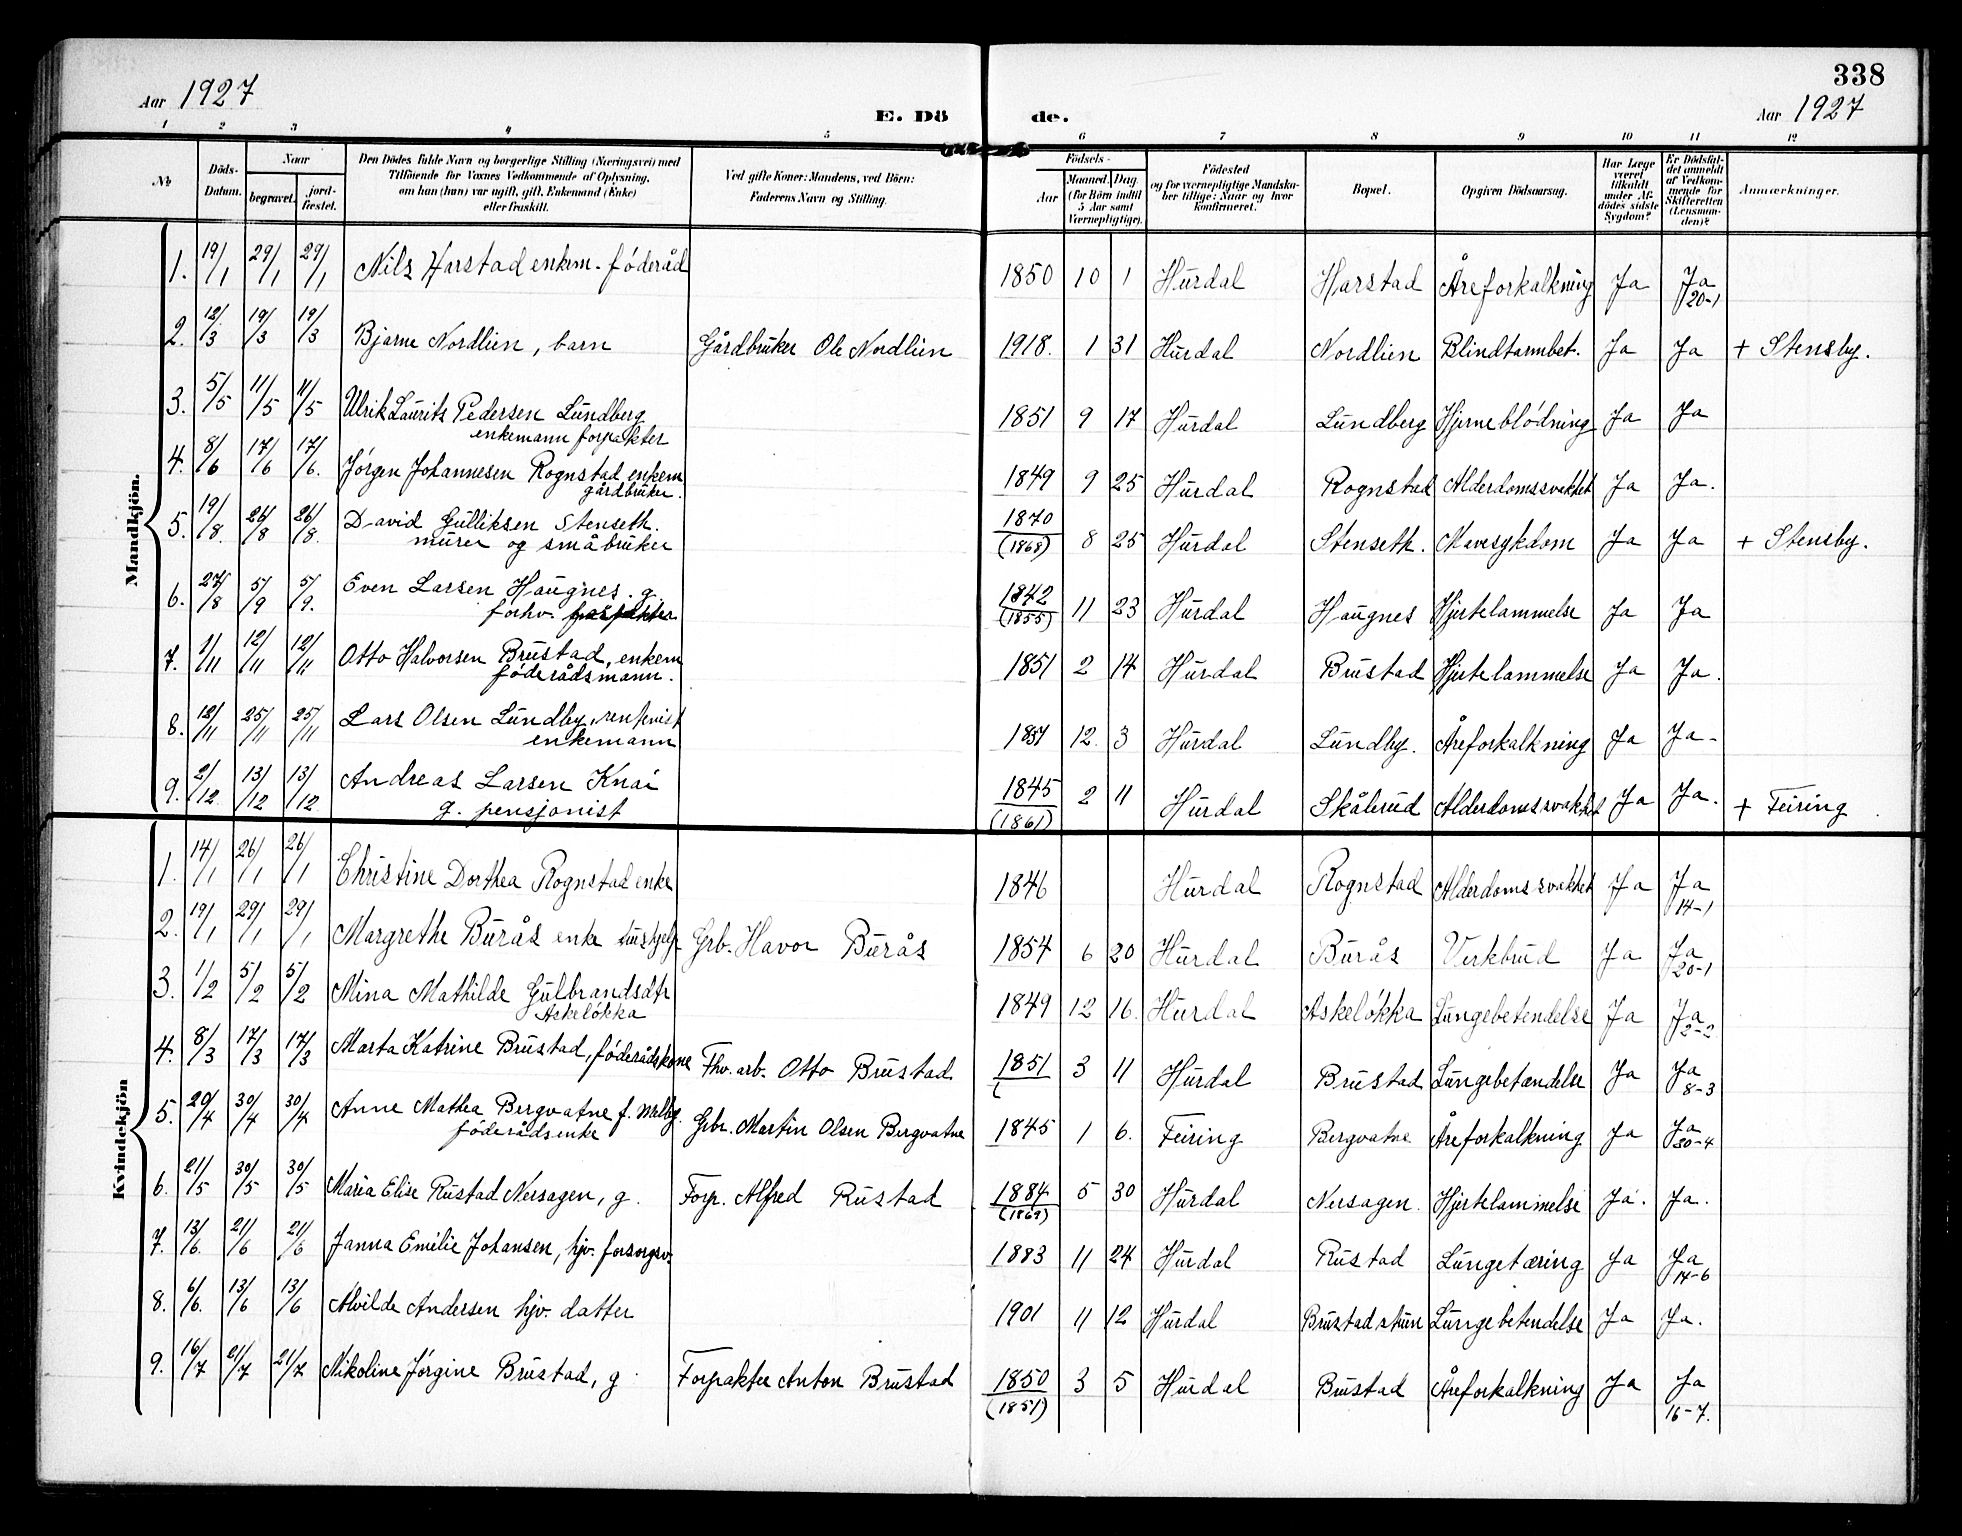 338
Aar 1927
E. Dö de.
Aar 1927
1 2 3 4 5 6 7 8 9 10 11 12
No
Döds-Datum.
Naar
begravet.
jord-fæstet.
Den Dödes fulde Navn og borgerlige Stilling (Næringsvei) med
Tilföiende for Voxnes Vedkommende af Oplysning,
om han (hun) var ugift, gift, Enkemand (Enke)
eller fraskilt.
Ved gifte Koner: Mandens, ved Börn:
Faderens Navn og Stilling.
Födsels-
Aar
Maaned. Dag.
(for Börn indtil
5 Aar samt
Værnepligtige).
Födested
og for værnepligtige Mandska-
ber tillige: Naar og hvor
konfirmeret.
Bopæl.
Opgiven Dödsaarsag.
Har Læge
været
tilkaldt
under Af-
dödes sidste
Sygdom?
Er Dödsfal-
det anmeldt
af Vedkom-
mende for
Skifteretten
(Lensman-
den)?
Anmærkninger.
Mandkjön.
1. 19/1 29/1 29/1 Nils Harstad enkem. føderåd 1850 10 1 Hurdal Harstad Åreforkalkning Ja Ja
20-1
2. 12/3 19/3 19/3 Bjarne Nordlien, barn Gårdbruker Ole Nordlien 1918. 1 31 Hurdal Nordlien Blindtarmbet. Ja Ja + Stensby.
3. 5/5 11/5 11/5 Ulrik Laurits Pedersen Lundberg 1851 9 17 Hurdal Lundberg Hjerneblødning Ja Ja
enkemann forpakter
4. 8/6 17/6 17/6. Jørgen Johannesen Rognstad enkem 1849 9 25 Hurdal Rognstad Alderdomssvakhet Ja Ja.
gårdbruker.
5. 19/8. 26/8 26/8. David Gulliksen Stenseth. 1870 8 25 Hurdal Stenseth. Mavesykdom Ja Ja + Stensby.
murer og småbruker (1868)
6. 27/8 5/9 5/9. Even Larsen Haugnes. g. 1842 11 23 Hurdal Haugnes Hjertelammelse Ja Ja
forhv. forpakter (1855)
7. 1/11 12/11 12/11 Otto Halvorsen Brustad, enkem 1851 2 14 Hurdal Brustad Hjertelammelse Ja Ja.
føderådsmann.
8. 12/11 25/11 25/11 Lars Olsen Lundby, rentenist 12. 3 Hurdal Lundby. Åreforkalkning Ja Ja-
enkemann
9. 2/12 13/12 13/12 Andreas Larsen Knai 1845 2 11 Hurdal Skålerud Alderdomssvakhet Ja Ja. + Feiring
g. pensjonist (1861)
Kvindekjön
1. 14/1 26/1 26/1 Christine Dorthea Rognstad enke 1846 Hurdal Rognstad Alderdomssvakhet Ja Ja
14-1
2. 19/1 29/1 29/1 Margrethe Burås enke Grb. Havor Burås 1854 6 20 Hurdal Burås Verkbrud Ja Ja
20-1
3. 1/2 5/2 5/2 Mina Mathilde Gulbrandsdtr 1849 12 16. Hurdal Askeløkka Lungebetendelse Ja Ja
Askeløkka 2-2
4. 8/3 17/3 17/3 Marta Katrine Brustad, føderådskone Fhv. arb. Otto Brustad 1851 3 11 Hurdal Brustad Lungebetændelse Ja Ja
( 8-3
5. 20/4 30/4 30/4 Anne Mathea Bergvatne f. Melby Gbr. Martin Olsen Bergvatne 1845 1 6. Feiring Bergvatne Åreforkalkning Ja Ja
føderådsenke 20-4
6. 21/5 30/5 30/5 Maria Elise Rustad Nersagen, g. Forp. Alfred Rustad 1884 5 30 Hurdal Nersagen. Hjertelammelse Ja. Ja.
(1869)
7. 13/6. 21/6 21/6 Janna Emilie Johansen, hjv. forsorgsv. 1883 11 24 Hurdal Rustad Lungetæring Ja Ja
14-6
8. 6/6. 13/6 13/6 Alvilde Andersen hjv. datter 1901 11 12 Hurdal Brustadstun Lungebetendelse Ja Ja.
9. 16/7 21/7 21/7 Nikoline Jørgine Brustad, g. Forpakter Anton Brustad 1850 3 5 Hurdal Brustad Åreforkalkning Ja Ja
(1851) 16-7.